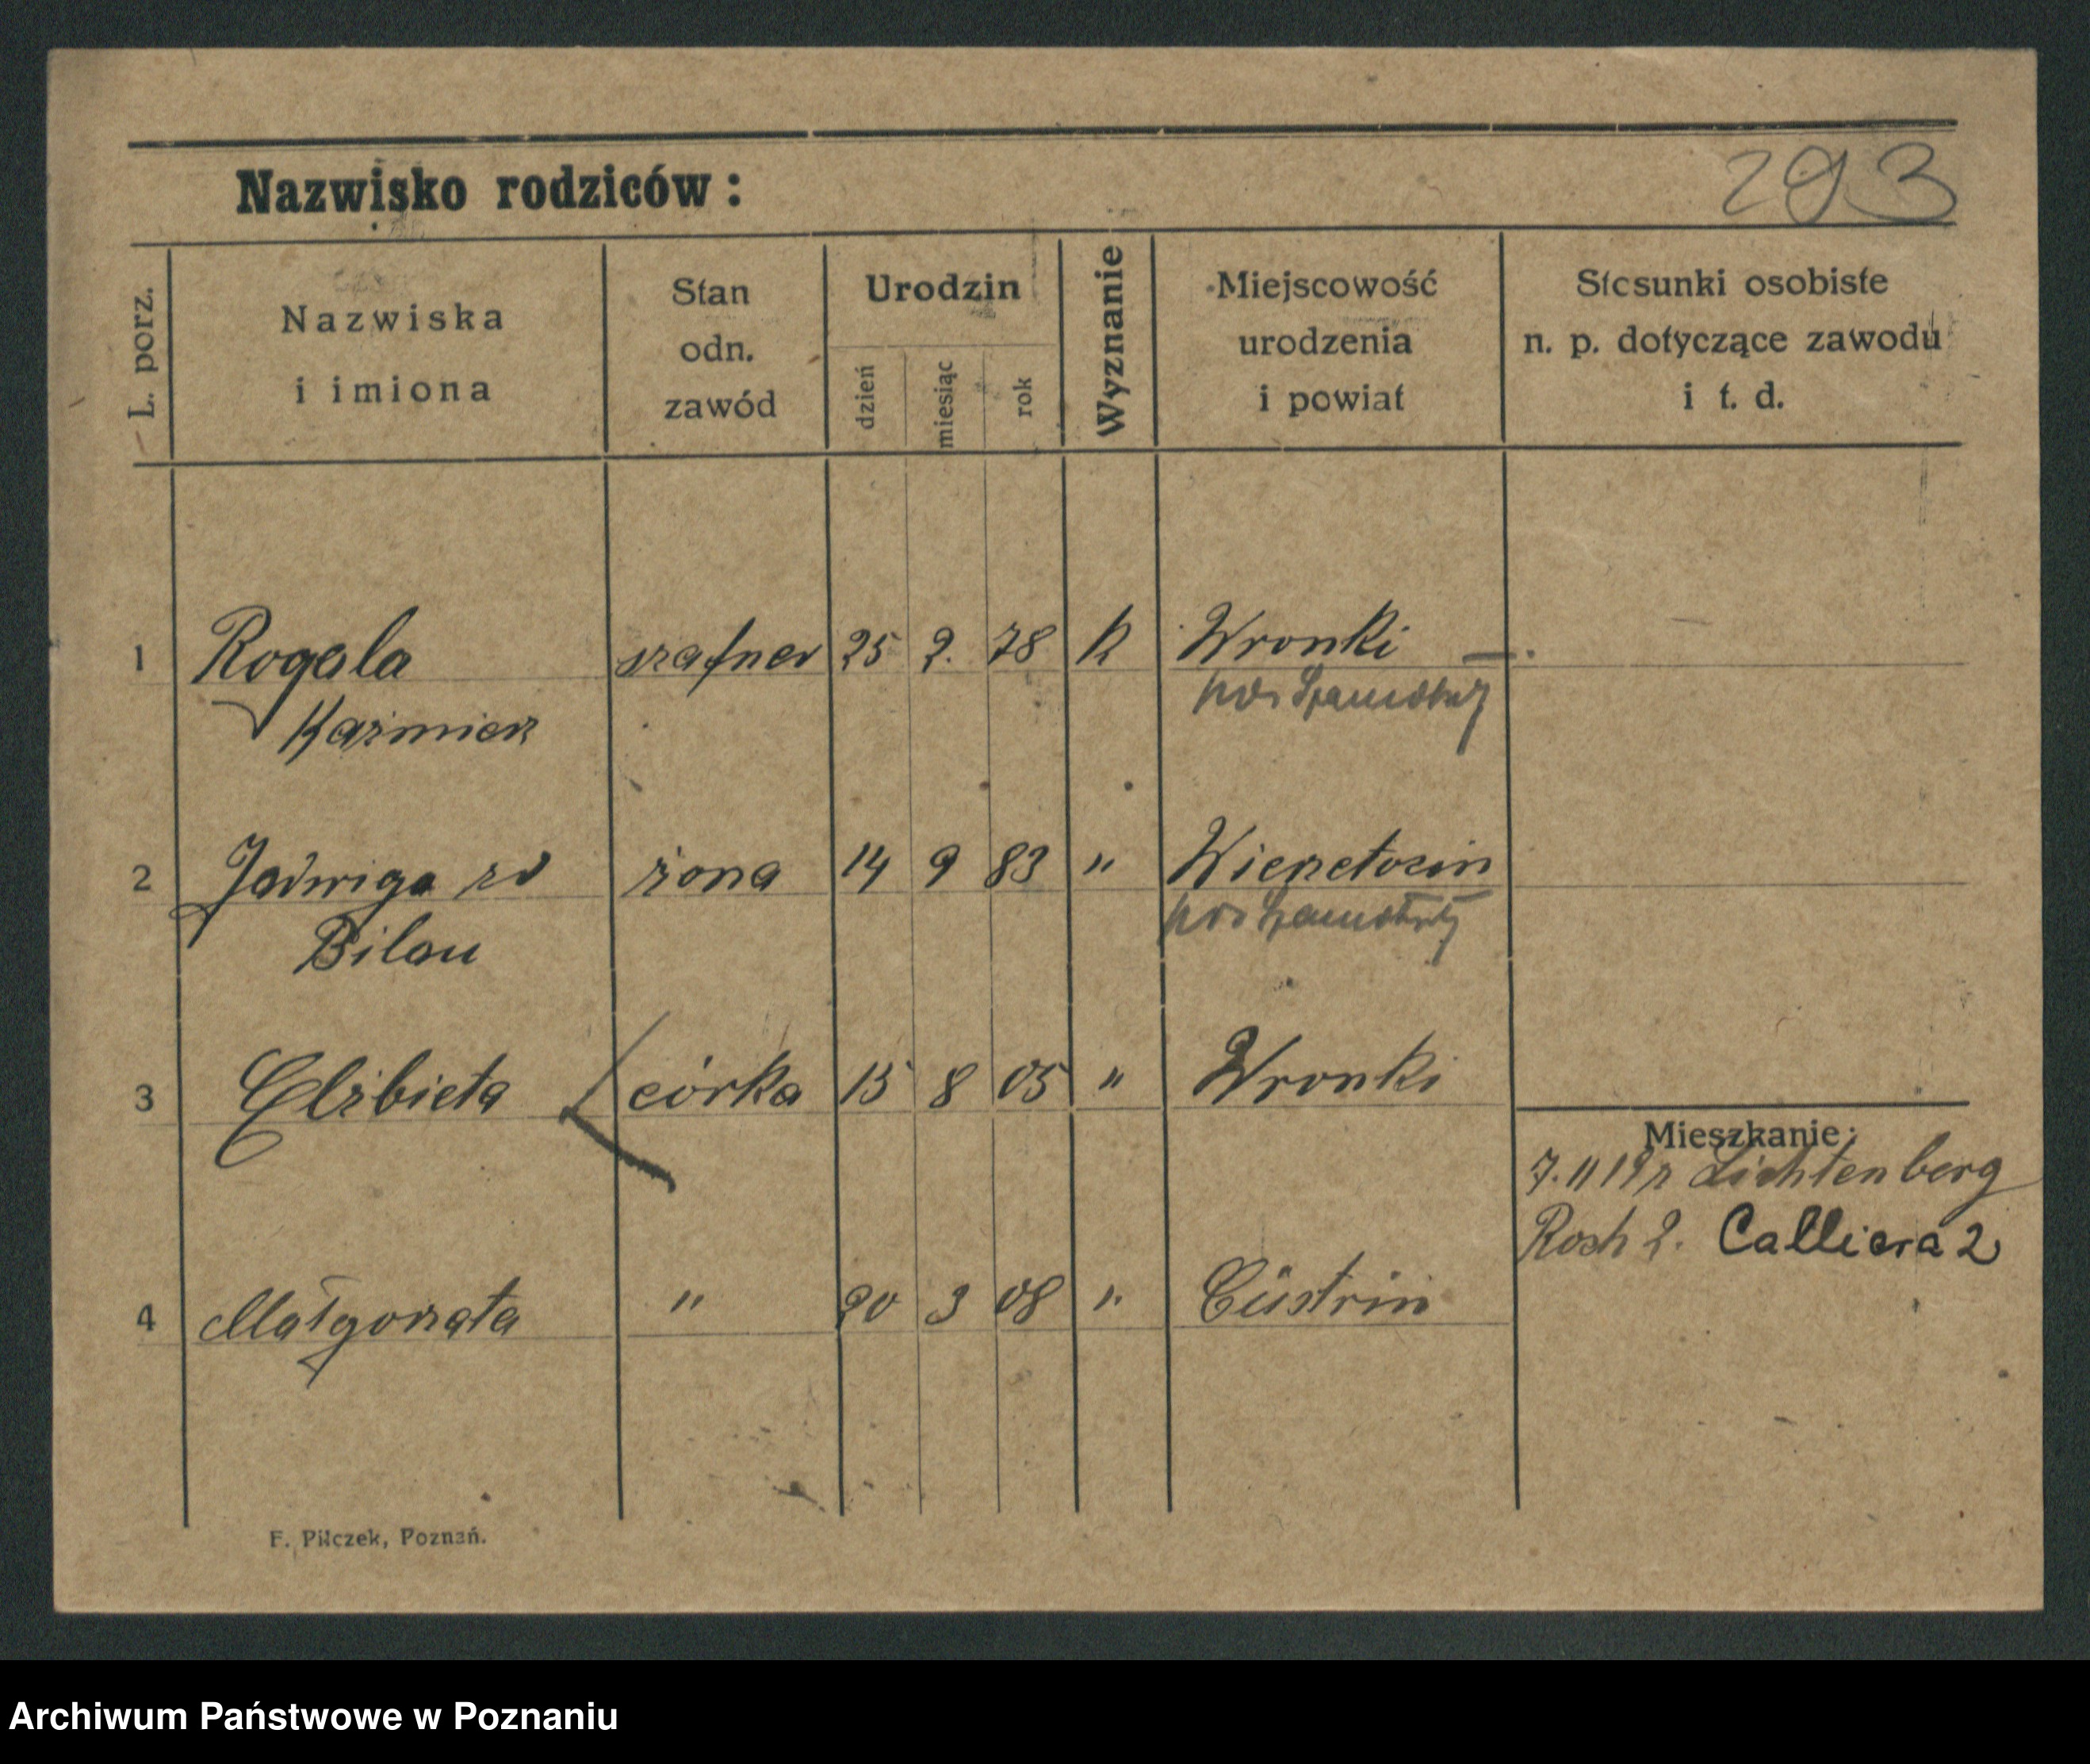 293
Nazwisko rodziców:
L. porz.
Nazwiska
i imiona
Stan
odn.
zawód
Urodzin
dzień
miesiąc
rok
Wyznanie
Miejscowość
urodzenia
i powiat
Stosunki osobiste
n. p. dotyczące zawodu
i t. d.
1 Rogala szafner 25 2. 78 K Wronki
Kaźmierz pow Szamotuły
2 Jadwiga zd żona 14 9 83 " 
Bilau pow Szamotuły
3 Elżbieta córka 15 8 05 " Wronki
Mieszkanie:
7. 11 19 r Lichtenberg
Roch 2. Calliera 2
4 Małgorzata " 20 3 08 " Cüstrin
F. Pilczek, Poznań.
Archiwum Państwowe w Poznaniu